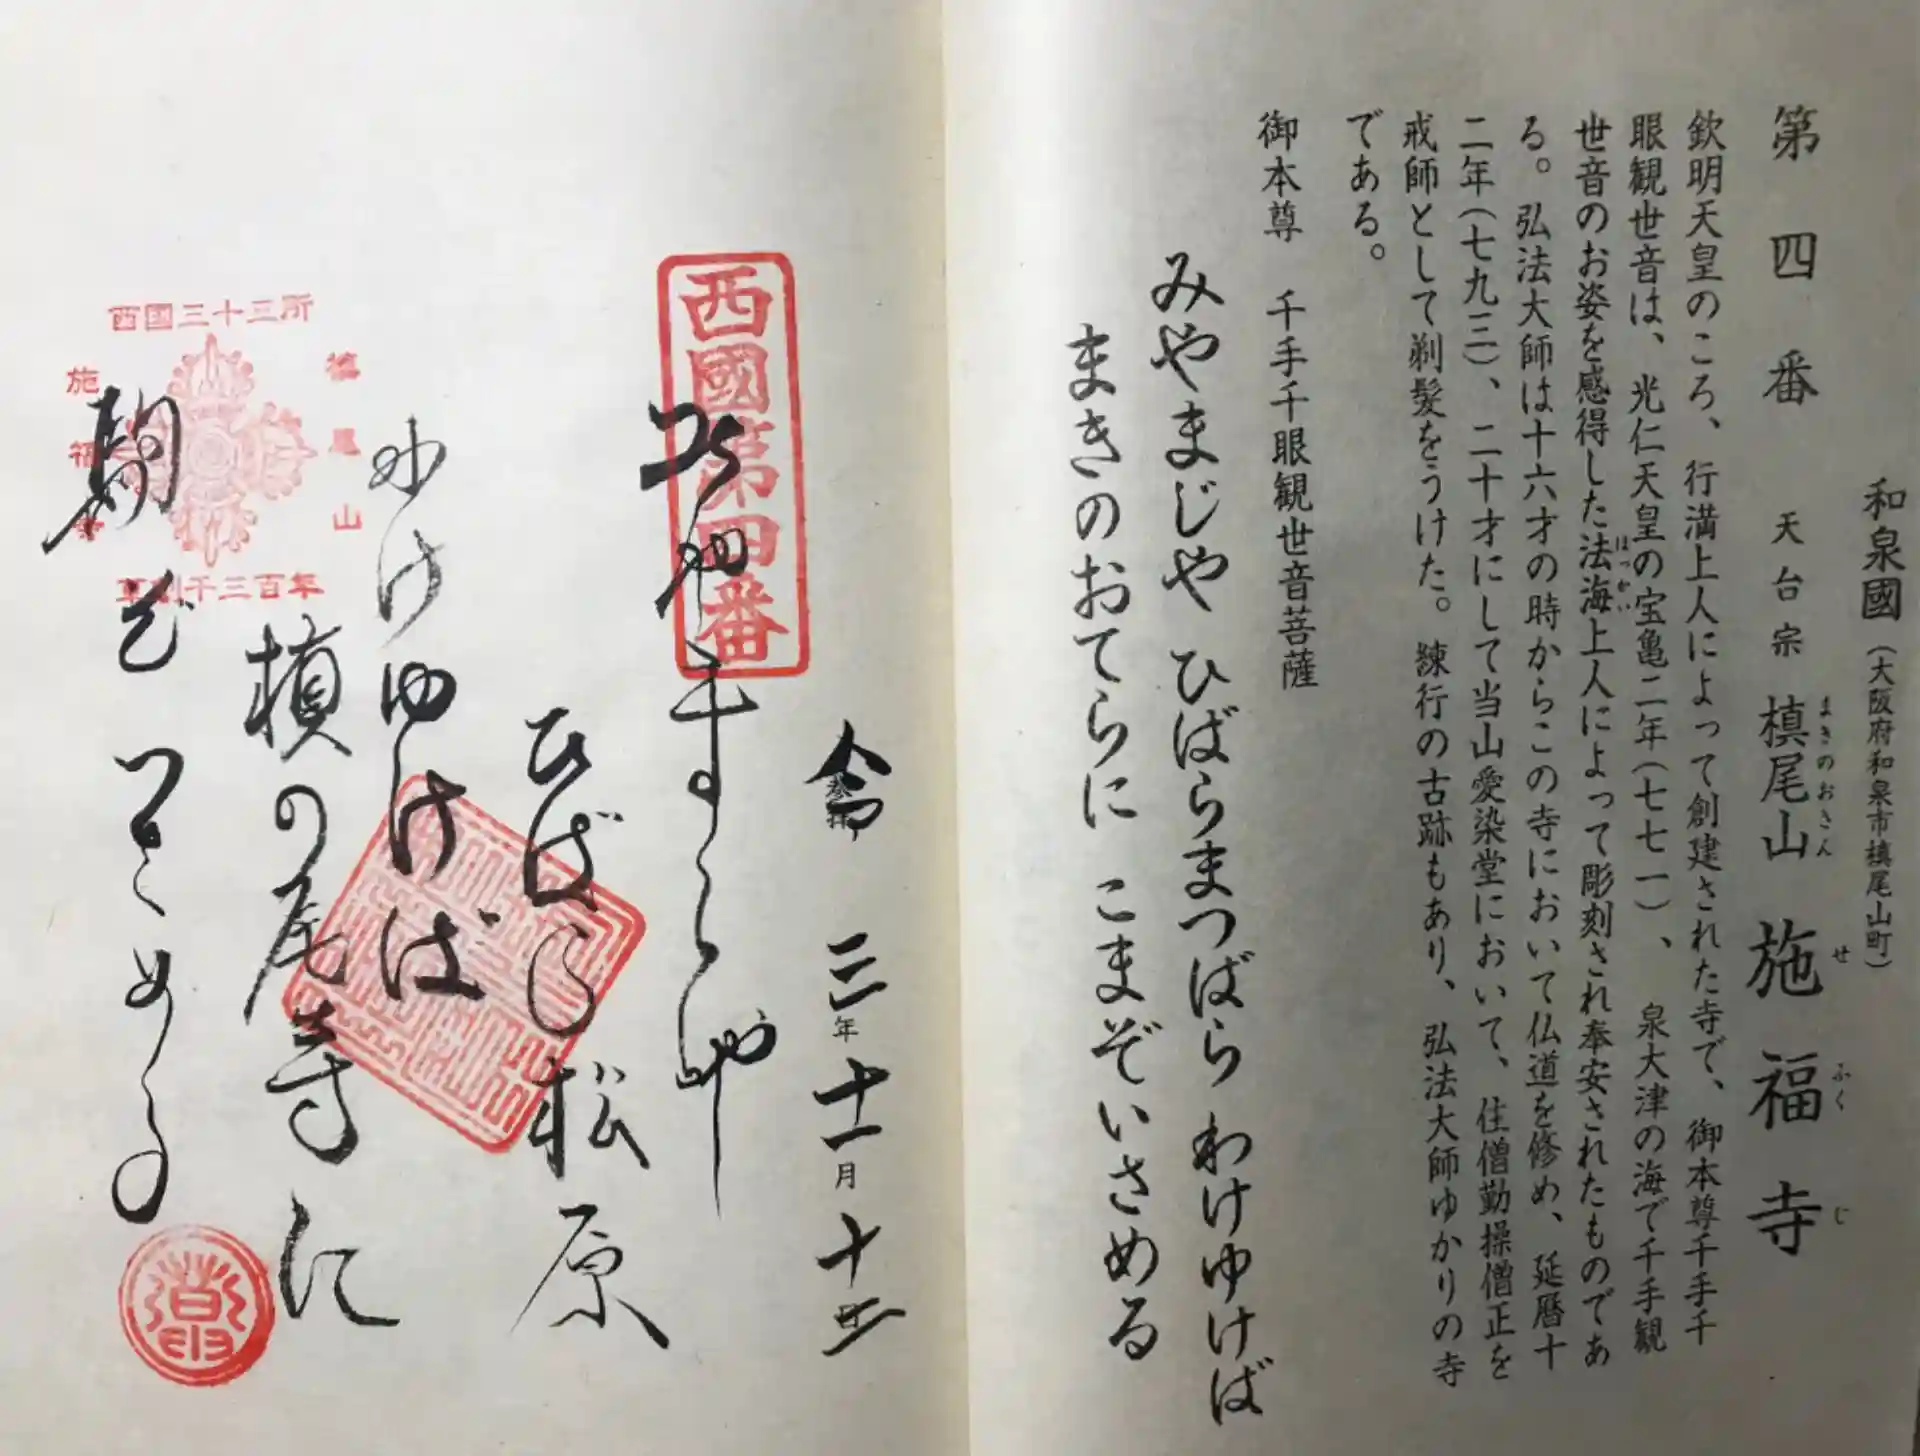 和泉國(大阪府和泉市槙尾山町)
第四番 天台宗 槙尾山 施福寺
まきのおさん せ ふく じ
欽明天皇のころ、行満上人によって創建された寺で、御本尊千手千
眼観世音は、光仁天皇の宝亀二年(七七一)、泉大津の海で千手観
世音のお姿を感得した法海上人によって彫刻され奉安されたものであ
はっかい
る。弘法大師は十六才の時からこの寺において仏道を修め、延暦十
二年(七九三)、二十才にして当山愛染堂において、住僧勤操僧正を
戒師として剃髪をうけた。練行の古跡もあり、弘法大師ゆかりの寺
である。
御本尊 千手千眼観世音菩薩
みやまじや ひばらまつばら わけゆけば
まきのおてらに こまぞいさめる
令和三年十一月十
奉拝
西國第四番
みやまじや
ひばら松原
わけゆけば
槙の尾寺に
駒ぞいさめる
西國三十三所
槙尾山
施福寺
草創千三百年